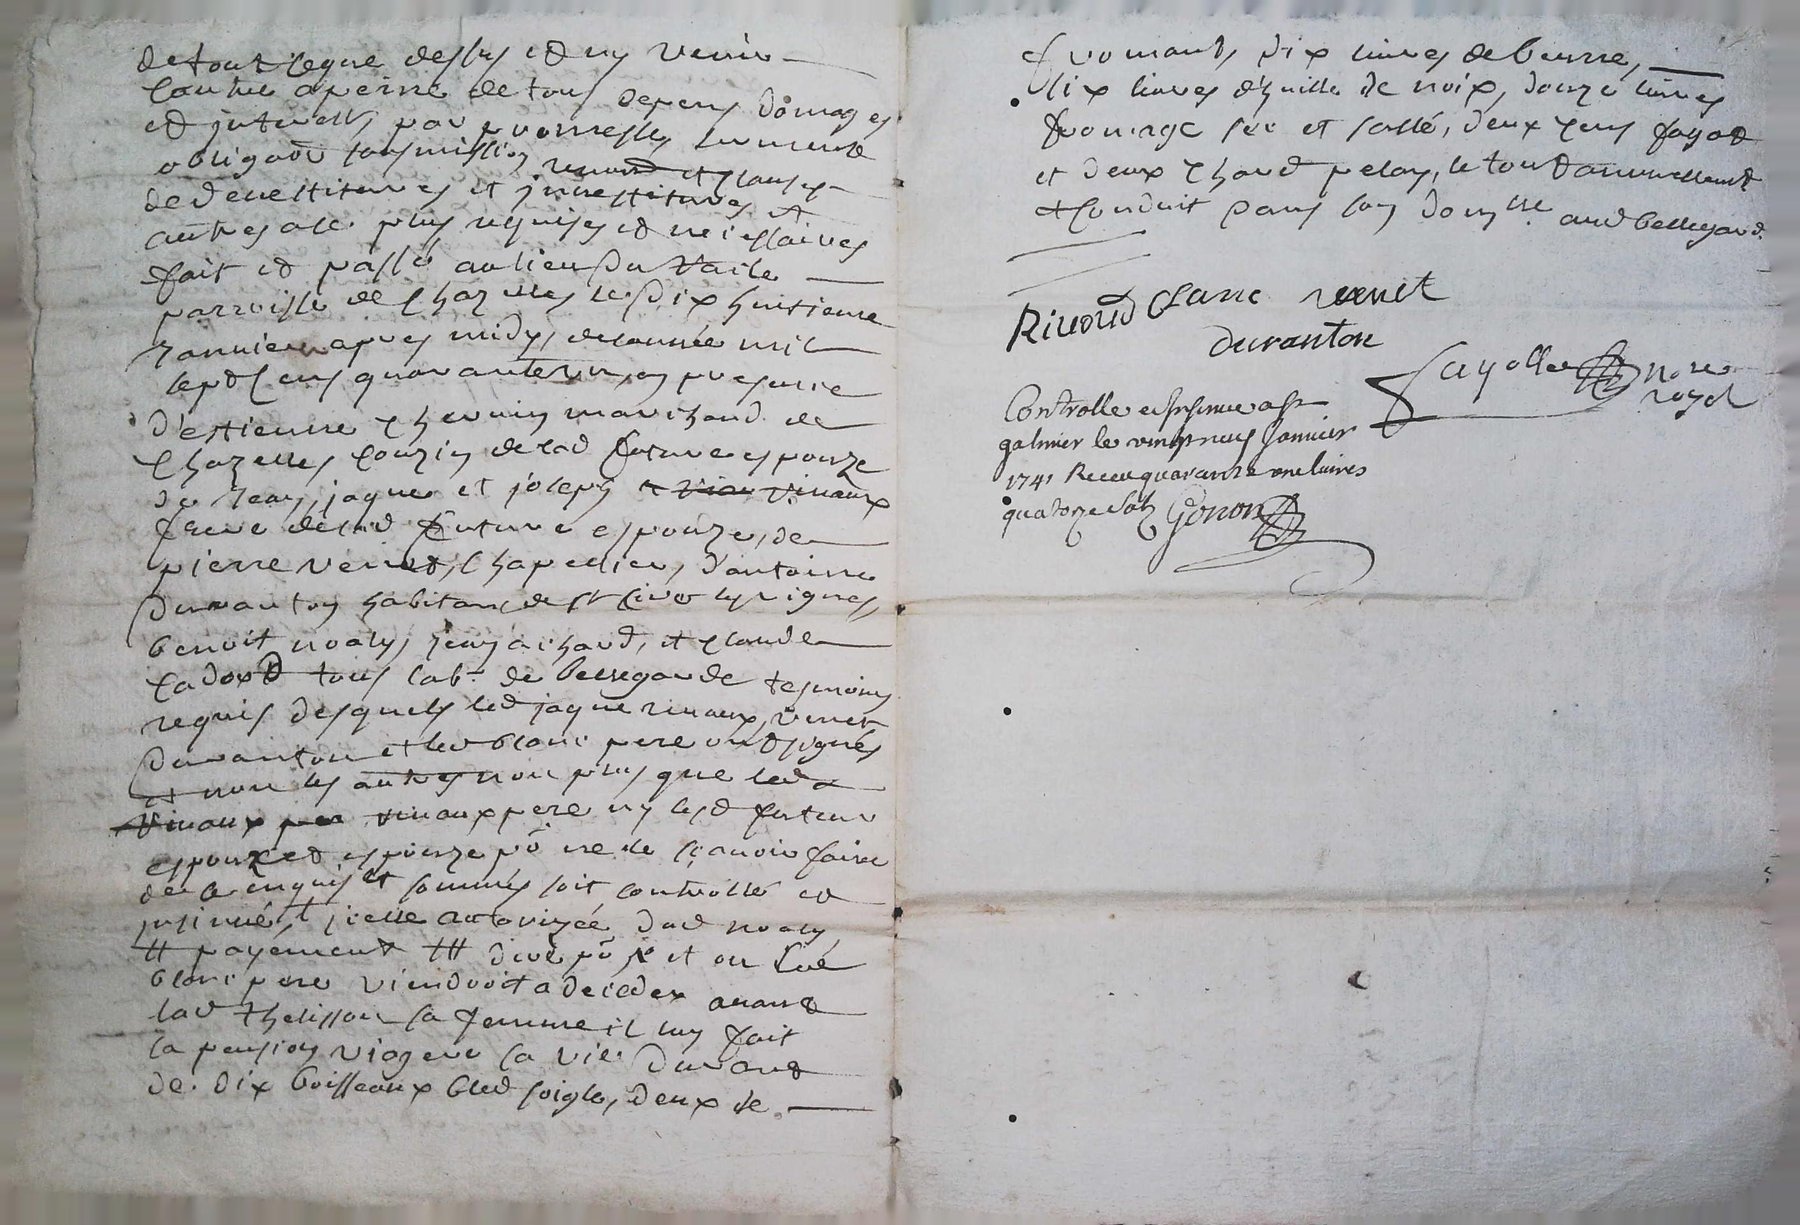 de tout ceque dessus et ny venir
contre apeine de tous depens domages
et interests par promesses serment
obligaon soumission renond et clauses
de devestitures et jnvestitures et
autres ace plus requises et necessaires
fait et passé au lieu Du
parroisse de Chazelles le Dix huitieme
Janvier apres midy, de lannée mil
sept Cens quarante un en presence
D'estienne marchand de
Chazelles Couzin de lad future espouze
de Jean, jaques et joseph Vinaux
frere delad future espouze, de
pierre vernet, Chapellier, d'antoine
Duranton habitans de st les vignes
benoit noaly, jean achard, et claude
tous lab. de bellegarde tesmoins
requis desquels led jaque vinaux, vernet
Duranton et led blanc pere ont signés
et non les autres non plus que led
Vinaux per vinaux pere ny lesd futeur
espoux et espouze po ne le sçavoir faire
de ce enquis et sommés soit controllé et
jnsinué, jcelle autorizée dud noaly
payement et ou led
blanc pere viendroit a deceder avant
lad thelisson sa femme il luy fait
la pension viagere sa vie Durant
de dix boisseaux bled soigle, deux de
fromant, dix livres de beurre,
six livres d'huille de noix, douze livres
fromage sec et sallé, deux cens fagot
et deux chard pelas, le tout annuellemt
et conduit dans son domlle aud bellegard.
Rivaud Clanc vernet
Duranton
fayolle nore
royal
Controlle et insinue a st
galmier le vingt neuf Janvier
1741 Receu quarante une livres
quatorze sols Gonon